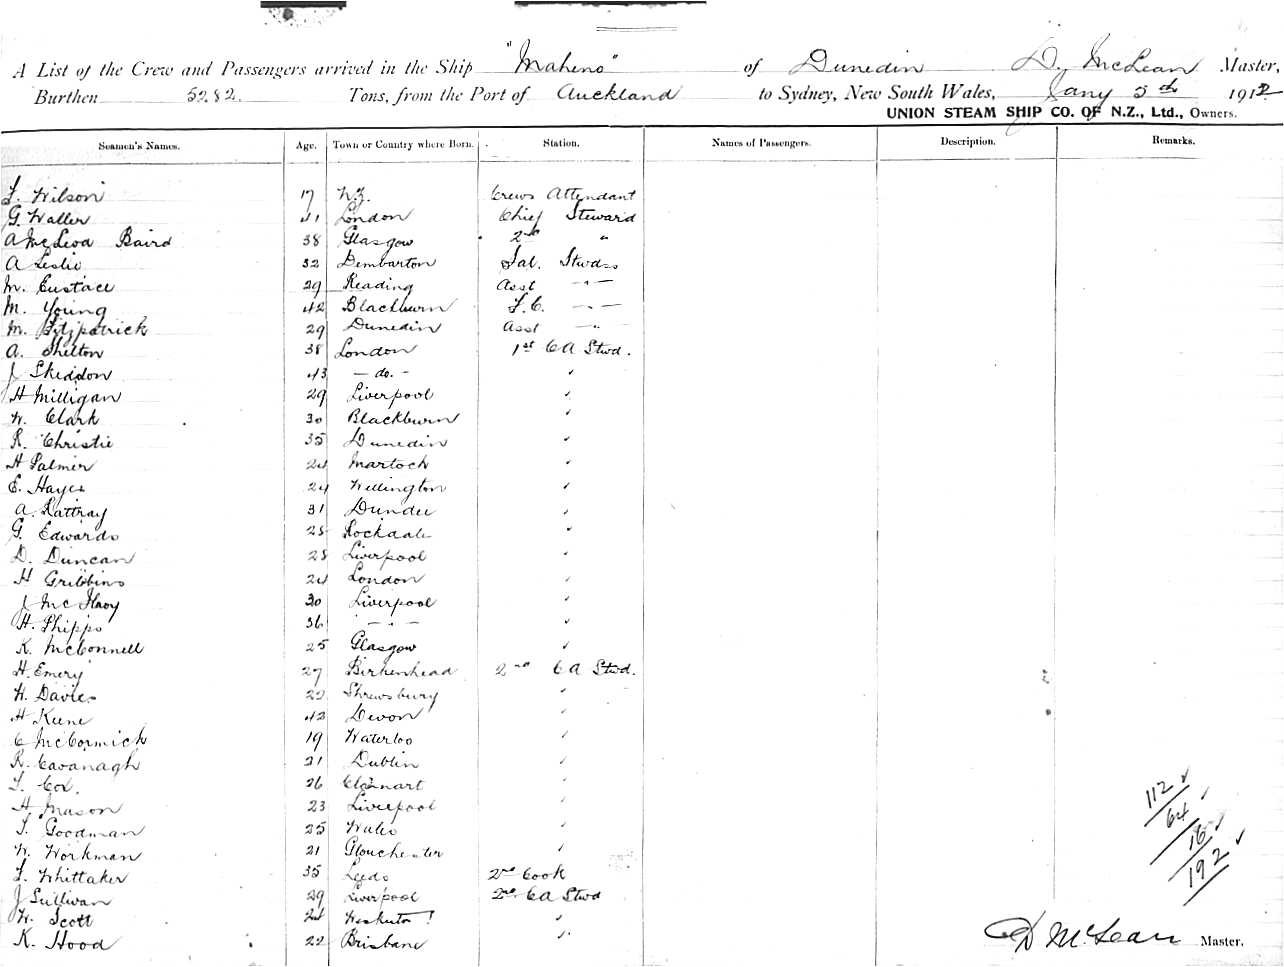 A List of the Crew and Passengers arrived in the Ship "Maheno" of Dunedin D. McLean Master,
Burthen 5282 Tons, from the Port of Auckland to Sydney, New South Wales, Jany 5th 1912
UNION STEAM SHIP CO. OF N.Z., Ltd., Owners.
Seamen's Names. Age. Town or Country where Born. Station. Names of Passengers. Description. Remarks.
F. Wilson 17 N.Z. Crews Attendant
G. Waller 41 London Chief Steward
A McLeod Baird 38 Glasgow 2nd "
A Leslie 32 Dembarton Sal. Stwdss
M. Eustace 29 Reading Asst — " —
M. Young 42 Blackburn F.C. — " —
M. Fitzpatrick 29 Dunedin Asst — " —
A. Shelton 38 London 1st CA Stwd.
J Skeddon 43 — do. - ✓
H Milligan 29 Liverpool ✓
W. Clark 30 Blackburn ✓
R. Christie 35 Dunedin ✓
H Palmer 24 Martock ✓
E. Hayes 24 Wellington ✓
A. Rattray 31 Dundee ✓
G. Edwards 25 Rockdale ✓
D. Duncan 28 Liverpool ✓
H Gribbins 24 London ✓
J McIlroy 30 Liverpool ✓
H. Phipps 36 — " — ✓
K. McConnell 25 Glasgow ✓
H. Emery 27 Birkenhead 2nd CA Stwd.
W. Davies 22 Shrewsbury ✓
H Keene 42 Devon ✓
C McCormick 19 Waterloo ✓
R. Cavanagh 21 Dublin ✓
F. Cox. 26 ✓
H Mason 23 Liverpool ✓
T. Goodman 25 Wales ✓
W. Workman 21 Glouchester ✓
F. Whittaker 35 Leeds 2nd Cook
J Sullivan 29 Liverpool 2nd CA Stwd
W. Scott 24 ✓
K. Hood 22 Brisbane ✓
112 ✓
64 ✓
16 ✓
192 ✓
D McLean Master.